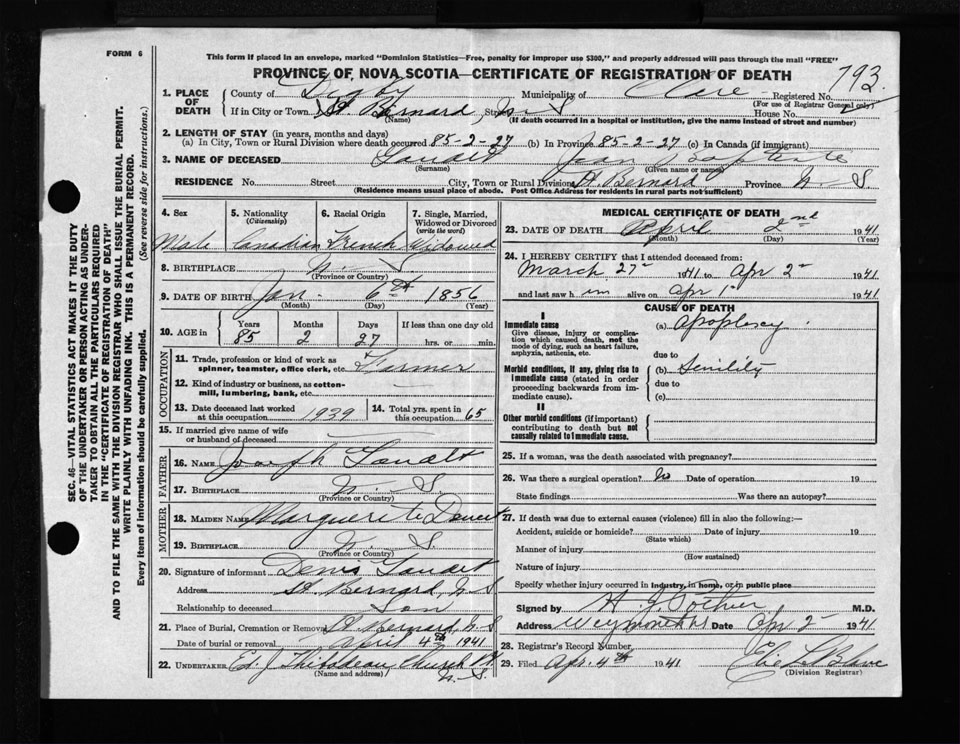 FORM 6
This form if placed in an envelope, marked "Dominion Statistics—Free, penalty for improper use $300," and properly addressed will pass through the mail "FREE"
PROVINCE OF NOVA SCOTIA—CERTIFICATE OF REGISTRATION OF DEATH
793
1. PLACE OF DEATH
County of Digby Municipality of Clare Registered No.
(For use of Registrar General only)
If in City or Town St. Bernard Street N. S. House No.
(Name) (If death occurred in a hospital or institution, give the name instead of street and number)
2. LENGTH OF STAY (in years, months and days)
(a) In City, Town or Rural Division where death occurred 85-2-27 (b) In Province 85-2-27 (c) In Canada (if immigrant)
3. NAME OF DECEASED Gaudet Jean Baptiste
(Surname) (Given name or names)
RESIDENCE No. Street City, Town or Rural Division St. Bernard Province N. S.
(Residence means usual place of abode. Post Office Address for residents in rural parts not sufficient)
4. Sex 5. Nationality (Citizenship) 6. Racial Origin 7. Single, Married, Widowed or Divorced (write the word)
Male Canadian French Widowed
8. BIRTHPLACE N. S.
(Province or Country)
9. DATE OF BIRTH Jan. 6th 1856
(Month) (Day) (Year)
10. AGE in Years Months Days If less than one day old
85 2 27 hrs. or min.
OCCUPATION
11. Trade, profession or kind of work as spinner, teamster, office clerk, etc. Farmer
12. Kind of industry or business, as cotton-mill, lumbering, bank, etc. —
13. Date deceased last worked at this occupation 1939 14. Total yrs. spent in this occupation 65
15. If married give name of wife or husband of deceased
FATHER
16. NAME Joseph Gaudet
17. BIRTHPLACE N. S.
(Province or Country)
MOTHER
18. MAIDEN NAME Marguerite Doucet
19. BIRTHPLACE N. S.
(Province or Country)
20. Signature of informant Denis Gaudet
Address St. Bernard, N-S
Relationship to deceased Son
21. Place of Burial, Cremation or Removal St. Bernard, N-S
Date of burial or removal April 4th 1941
22. UNDERTAKER Ed. J. Thibodeau, Church Pt.
(Name and address) N-S.
MEDICAL CERTIFICATE OF DEATH
23. DATE OF DEATH April 2nd 1941
(Month) (Day) (Year)
24. I HEREBY CERTIFY that I attended deceased from:
March 27 1941 to Apr 2 1941
and last saw him alive on Apr 1 1941
CAUSE OF DEATH
I
Immediate cause (a) Apoplexy
Give disease, injury or complication which caused death, not the mode of dying, such as heart failure, asphyxia, asthenia, etc.
due to
Morbid conditions, if any, giving rise to immediate cause (stated in order proceeding backwards from immediate cause).
(b) Senility
due to
(c)
II
Other morbid conditions (if important) contributing to death but not causally related to immediate cause.
25. If a woman, was the death associated with pregnancy?
26. Was there a surgical operation? No Date of operation 19
State findings Was there an autopsy?
27. If death was due to external causes (violence) fill in also the following:—
Accident, suicide or homicide? Date of injury 19
(State which)
Manner of injury
(How sustained)
Nature of injury
Specify whether injury occurred in industry, in home, or in public place
Signed by H. J. Pothier M.D.
Address Weymouth NS Date Apr 2 1941
28. Registrar's Record Number
29. Filed Apr. 4th 1941 Elie LeBlanc
(Division Registrar)
SEC. 46—VITAL STATISTICS ACT MAKES IT THE DUTY
OF THE UNDERTAKER OR PERSON ACTING AS UNDER-
TAKER TO OBTAIN ALL THE PARTICULARS REQUIRED
IN THE "CERTIFICATE OF REGISTRATION OF DEATH"
AND TO FILE THE SAME WITH THE DIVISION REGISTRAR WHO SHALL ISSUE THE BURIAL PERMIT.
WRITE PLAINLY WITH UNFADING INK. THIS IS A PERMANENT RECORD.
Every item of information should be carefully supplied. (See reverse side for instructions.)